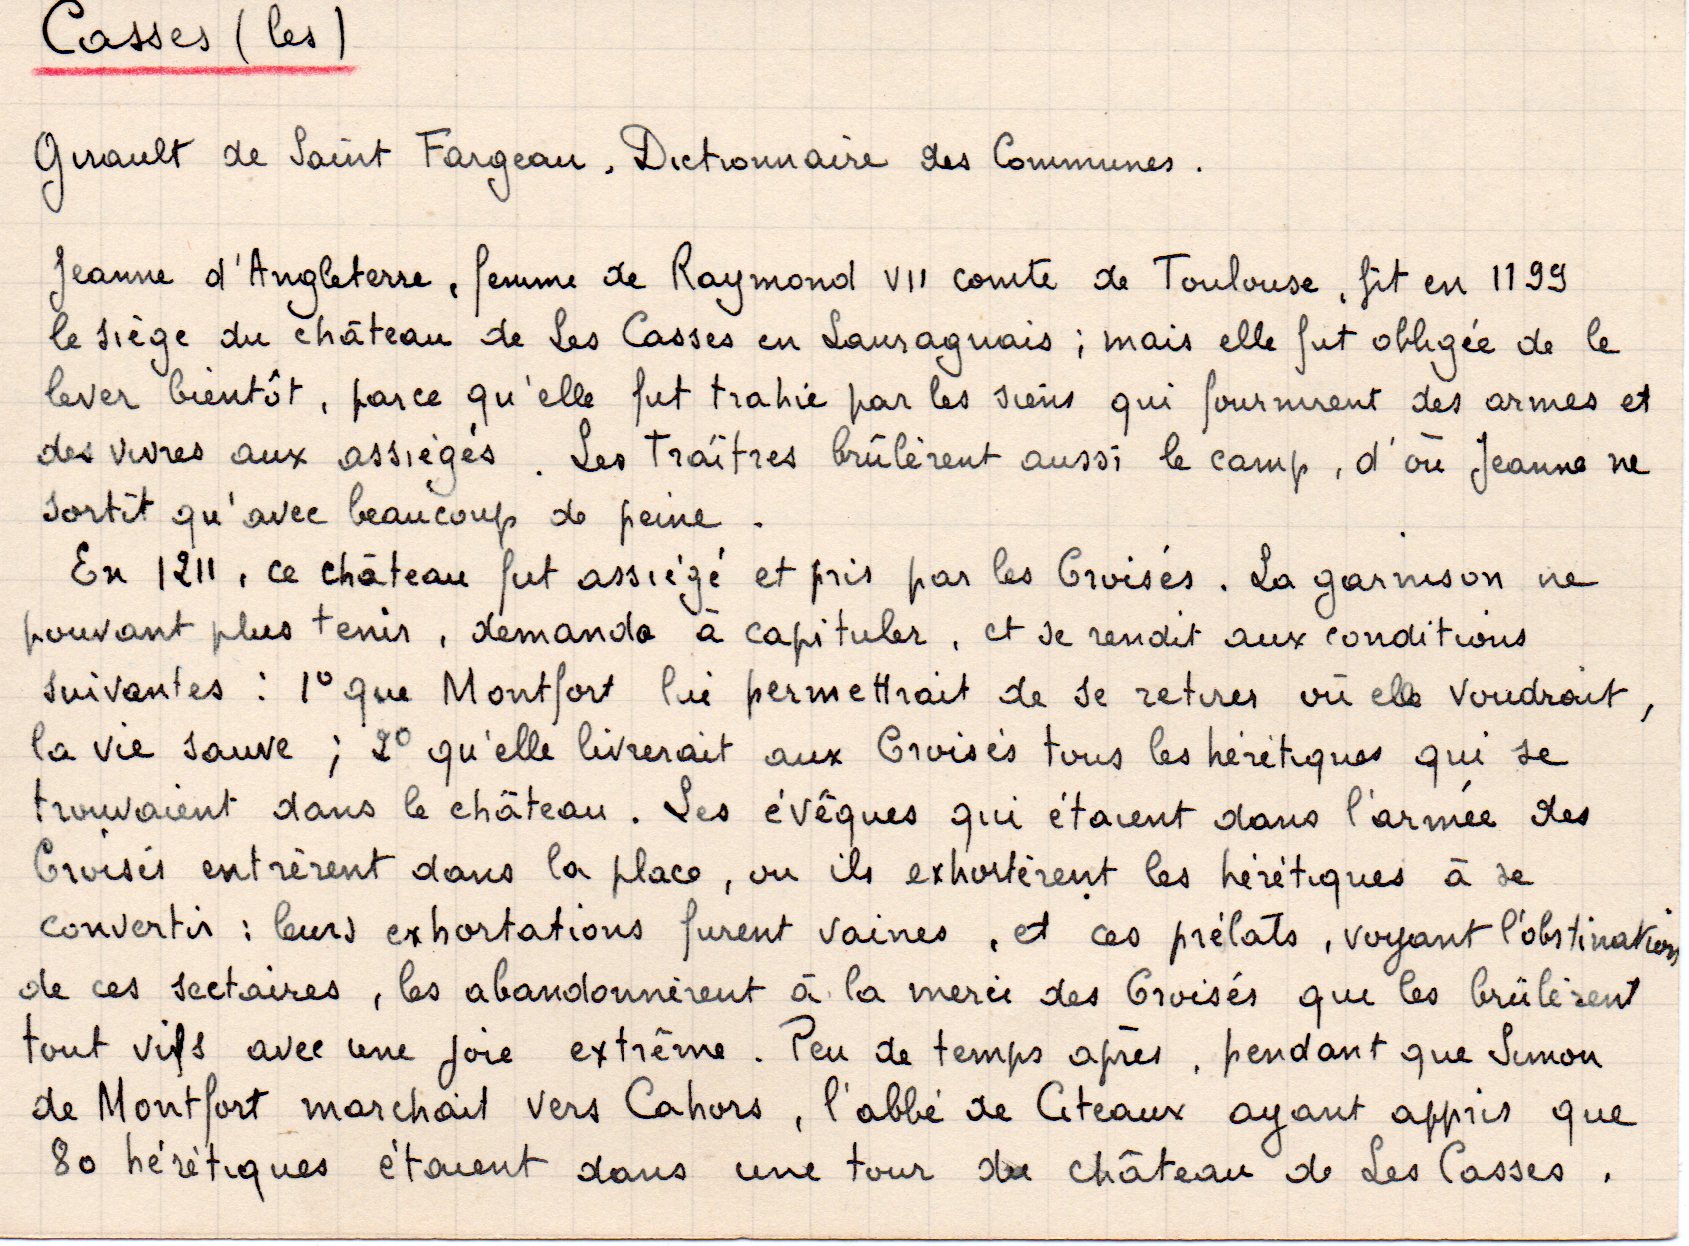 Casses (les)
Girault de Saint Fargeau. Dictionnaire des Communes.
Jeanne d'Angleterre, femme de Raymond VII comte de Toulouse, fit en 1199
le siège du château de Les Casses en Lauraguais ; mais elle fut obligée de le
lever bientôt, parce qu'elle fut trahie par les siens qui fournirent des armes et
des vivres aux assiégés. Les traîtres brûlèrent aussi le camp, d'où Jeanne ne
sortit qu'avec beaucoup de peine.
En 1211, ce château fut assiégé et pris par les Croisés. La garnison ne
pouvant plus tenir, demanda à capituler, et se rendit aux conditions
suivantes : 1° que Montfort lui permettrait de se retirer où elle voudrait,
la vie sauve ; 2° qu'elle livrerait aux Croisés tous les hérétiques qui se
trouvaient dans le château. Les évêques qui étaient dans l'armée des
Croisés entrèrent dans la place, ou ils exhortèrent les hérétiques à se
convertir : leurs exhortations furent vaines, et ces prélats, voyant l'obstination
de ces sectaires, les abandonnèrent à la merci des Croisés qui les brûlèrent
tout vifs avec une joie extrême. Peu de temps après, pendant que Simon
de Montfort marchait vers Cahors, l'abbé de Citeaux ayant appris que
80 hérétiques étaient dans une tour du château de Les Casses,